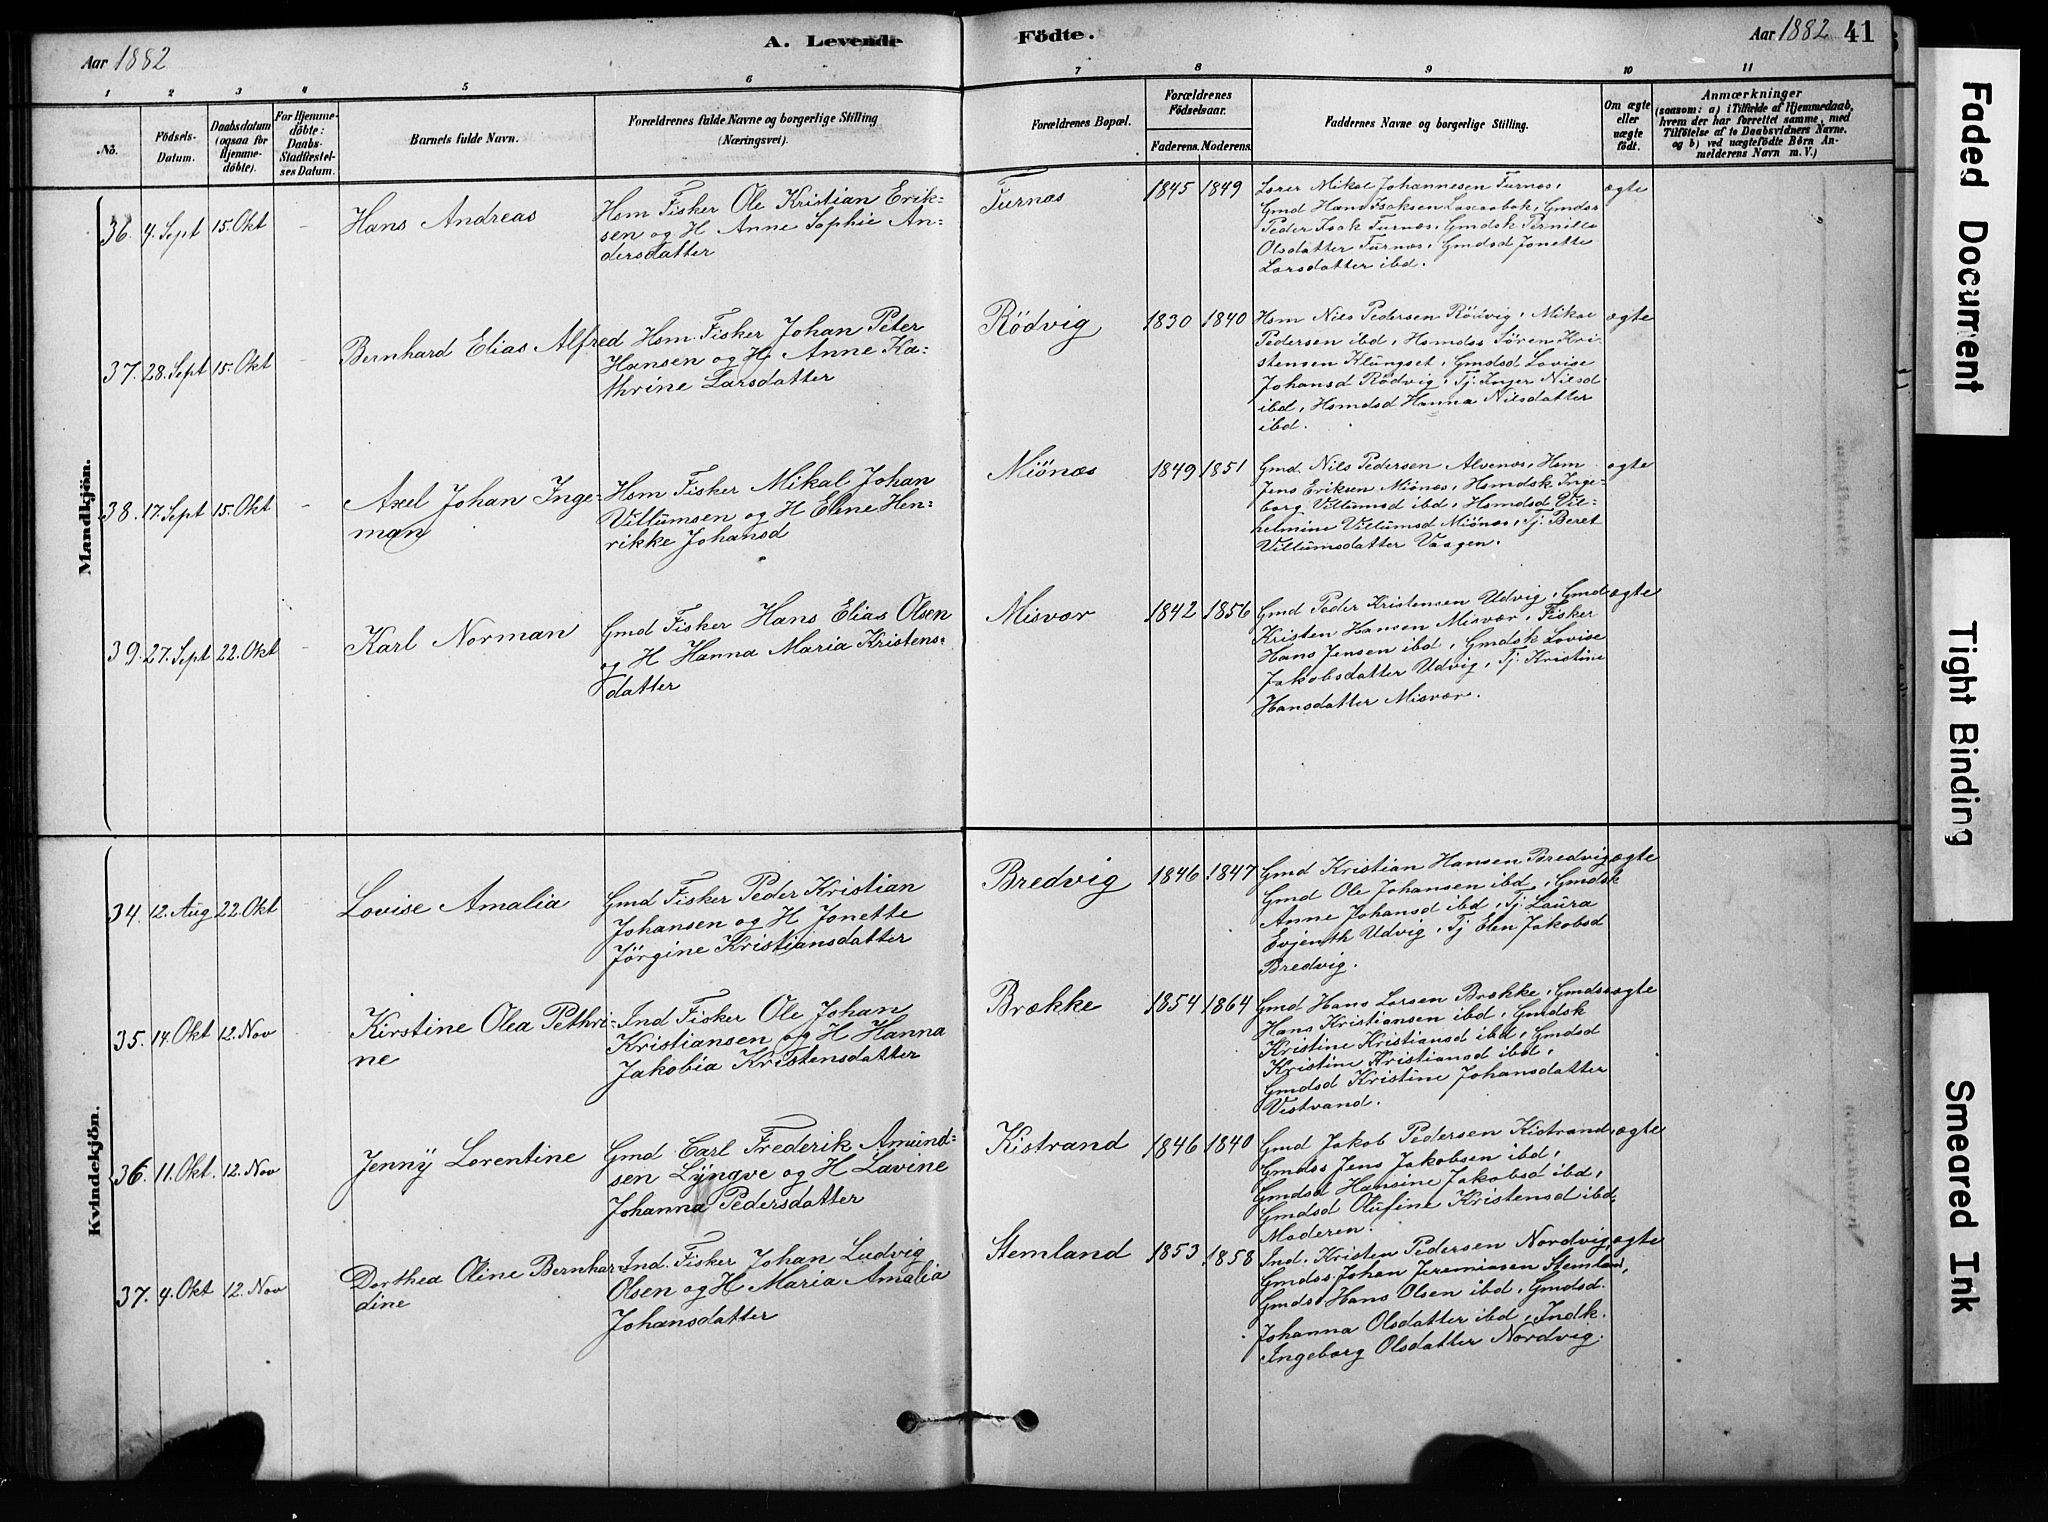 Aar 1882
A. Levende Födte.
Aar 1882 41
1 2 3 4 5 6 7 8 9 10 11
No.
Födsels-
Datum.
Daabsdatum
(ogsaa for
Hjemme-
döbte).
For Hjemme-
döbte:
Daabs-
Stadfæstel-
ses Datum.
Barnets fulde Navn.
Forældrenes fulde Navne og borgerlige Stilling
(Næringsvei).
Forældrenes Bopæl.
Forældrenes
Födselsaar.
Faderens. Moderens.
Faddernes Navne og borgerlige Stilling.
Om ægte
eller
uægte
födt.
Anmærkninger
(saasom: a) i Tilfælde af Hjemmedaab,
hvem der har forrettet samme, med
Tilföielse af to Daabsvidners Navne,
og b) ved uægtefödte Börn An-
melderens Navn m. V.)
Mandkjön.
36. 4. Sept 15. Okt
Hans Andreas
Hsm Fisker Ole Kristian Erik-
sen og H Anne Sophie An-
dersdatter
Turnæs
1845 1849
Lærer Mikal Johannesen Turnæs,
Gmd Hans Isaksen Laxaabak, Gmdss
Peder Isak Turnæs, Gmdsk Pernille
Olsdatter Turnæs, Gmdsd Jonette
Larsdatter ibd.
ægte
37. 28. Sept 15. Okt
Bernhard Elias Alfred
Hsm. Fisker Johan Peter
Hansen og H Anne Ka-
thrine Larsdatter
Rödvig
1830 1840
Hsm Nils Pedersen Rödvig, Mikal
Pedersen ibd, Hsmdss Sören Kri-
stensen Klungset, Gmdsd Lovise
Johansd Rödvig, Tj. Inger Nilsd
ibd, Hsmdsd Hanna Nilsdatter
ibd.
ægte
38. 17. Sept 15. Okt
Axel Johan Inge-
man
Hsm Fisker Mikal Johan
Villumsen og H Eline Hen-
rikke Johansd
Miönæs
1849 1851
Gmd. Nils Pedersen Alvenæs, Hsm
Jens Eriksen Miönæs, Hsmdsk Inge-
borg Villumsd ibd, Hsmdsd Vil-
helmine Villumsd Miönæs, Tj. Beret
Villumsdatter Vaagen.
ægte
39. 27. Sept 22. Okt
Karl Norman
Gmd Fisker Hans Elias Olsen
og H Hanna Maria Kristens-
datter
Misvær
1842 1856
Gmd Peder Kristensen Udvig, Gmd
Kristen Hansen Misvær, Fisker
Hans Jensen ibd, Gmdsk Lovise
Jakobsdatter Udvig, Tj. Kristine
Hansdatter Misvær.
ægte
Kvindekjön.
34. 12. Aug 22. Okt
Lovise Amalia
Gmd Fisker Peder Kristian
Johansen og H Jonette
Jörgine Kristiansdatter
Bredvig
1846 1847
Gmd Kristian Hansen Bredvig
Gmd Ole Johansen ibd, Gmdsk
Anne Johansd ibd, Tj. Laura
Evjenth Udvig, Tj Elen Jakobsd
Bredvig.
ægte
35. 14. Okt 12. Nov
Kirstine Olea Pethri-
ne
Ind Fisker Ole Johan
Kristiansen og H Hanna
Jakobia Kristensdatter
Brække
1854 1864
Gmd Hans Larsen Brække, Gmdss
Hans Kristiansen ibd, Gmdsk
Kristine Kristiansd ibd, Gmdsd
Kristine Kristiansd ibd,
Gmdsd Kristine Johansdatter
Vestvand.
ægte
36. 11. Okt. 12. Nov
Jenny Lorentine
Gmd Carl Frederik Amund-
sen Lyngve og H Lavine
Johanna Pedersdatter
Kistrand
1846 1840
Gmd Jakob Pedersen Kistrand,
Gmdss Jens Jakobsen ibd,
Gmdsd Hansine Jakobsd ibd,
Gmdsd Olufine Kristensd ibd,
Moderen.
ægte
37. 4. Okt 12. Nov
Dorthea Oline Bernhar-
dine
Ind. Fisker Johan Ludvig
Olsen og H Maria Amalia
Johansdatter
Stemland
1853 1858
Ind. Kristen Pedersen Nordvig,
Gmdss Johan Jeremiasen Stemland,
Gmdss Hans Olsen ibd, Gmdsd.
Johanna Olsdatter ibd, Indk.
Ingeborg Olsdatter Nordvig.
ægte
Faded Document
Tight Binding
Smeared Ink